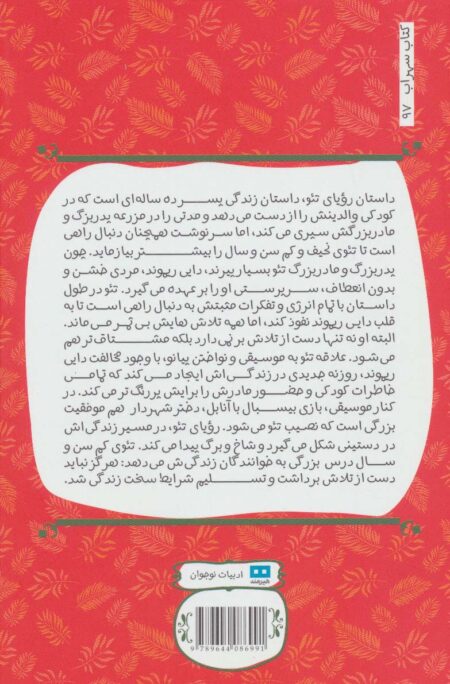 کتاب سهراب ۹۷
داستان رؤیای تئو، داستان زندگی پسر ده ساله‌ای است که در
کودکی والدینش را از دست می‌دهد و مدتی را در مزرعه پدربزرگ و
مادربزرگش سپری می‌کند، اما سرنوشت همچنان دنبال راهی
است تا تئوی نحیف و کم سن و سال را بیشتر بیازماید. چون
پدربزرگ و مادربزرگ تئو بسیار پیرند، دایی ریموند، مردی خشن و
بدون انعطاف، سرپرستی او را بر عهده می‌گیرد. تئو در طول
داستان با تمام انرژی و تفکرات مثبتش به دنبال راهی است تا به
قلب دایی ریموند نفوذ کند، اما همه تلاش هایش بی ثمر می ماند.
البته او نه تنها دست از تلاش بر نمی دارد بلکه مشتاق تر هم
می شود. علاقه تئو به موسیقی و نواختن پیانو، با وجود مخالفت دایی
ریموند، روزنه جدیدی در زندگی اش ایجاد می کند که تمامی
خاطرات کودکی و حضور مادرش را برایش پررنگ تر می کند. در
کنار موسیقی، بازی بیسبال با آنابل، دختر شهردار هم موفقیت
بزرگی است که نصیب تئو می شود. رؤیای تئو، در مسیر زندگی اش
در دستینی شکل می گیرد و شاخ و برگ پیدا می کند. تئوی کم سن و
سال درس بزرگی به خوانندگان زندگی ش می دهد: هرگز نباید
دست از تلاش برداشت و تسلیم شرایط سخت زندگی شد.
هیرمند
ادبیات نوجوان
9 789644 086991